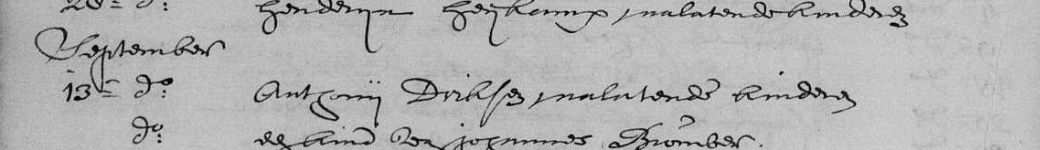 20 = do: henderijn heijkoop, nalatende kinderen
September
13 = do: Anthonij Dirksen, nalatende kinderen
do: een kind van johannes Bromber.